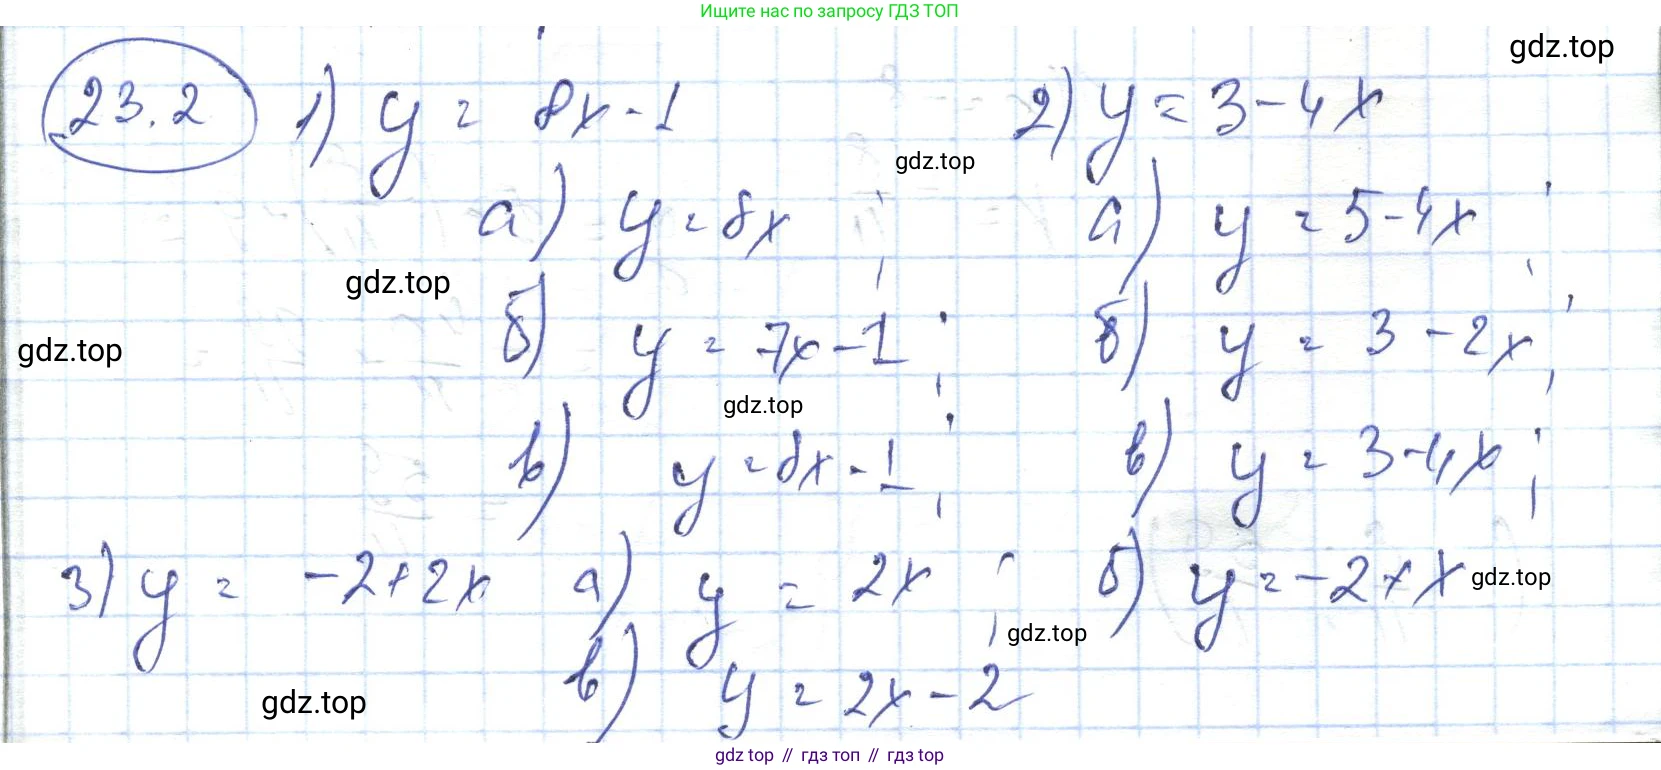 Ищите нас по запросу ГДЗ ТОП
gdz.top
23.2 1) y = 8x - 1 2) y = 3 - 4x
gdz.top
а) y = 8x ; а) y = 5 - 4x ;
gdz.top
б) y = 7x - 1 ; б) y = 3 - 2x ;
gdz.top
gdz.top
в) y = 8x - 1 ; в) y = 3 - 4x ;
3) y = -2 + 2x а) y = 2x ; б) y = -2 + x
gdz.top
gdz.top
в) y = 2x - 2
gdz.top
gdz top // гдз топ // гдз top